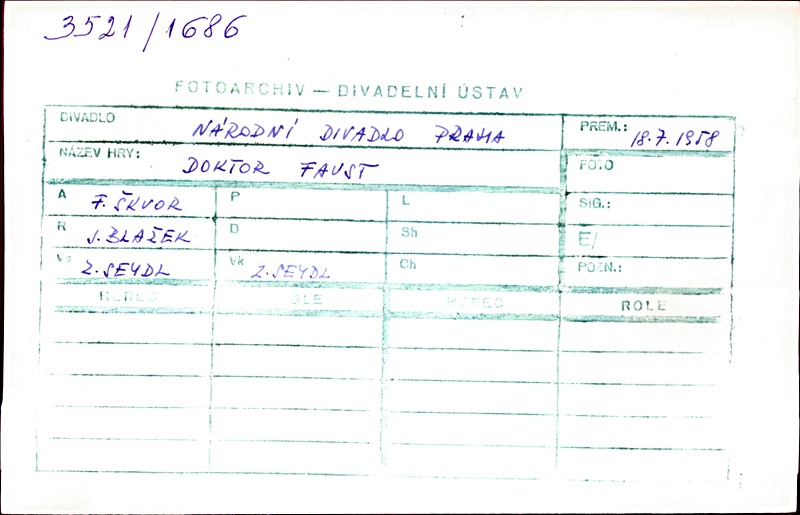 3521/1686
FOTOARCHIV — DIVADELNÍ ÚSTAV
DIVADLO NÁRODNÍ DIVADLO PRAHA PREM.: 18.7.1958
NÁZEV HRY: DOKTOR FAUST FOTO
A F. ŠKVOR P L SIG.:
R J. BLAŽEK D Sh E/
Vs Z. SEYDL Vk Z. SEYDL Ch POZN.:
HEREC OLE HEREC ROLE